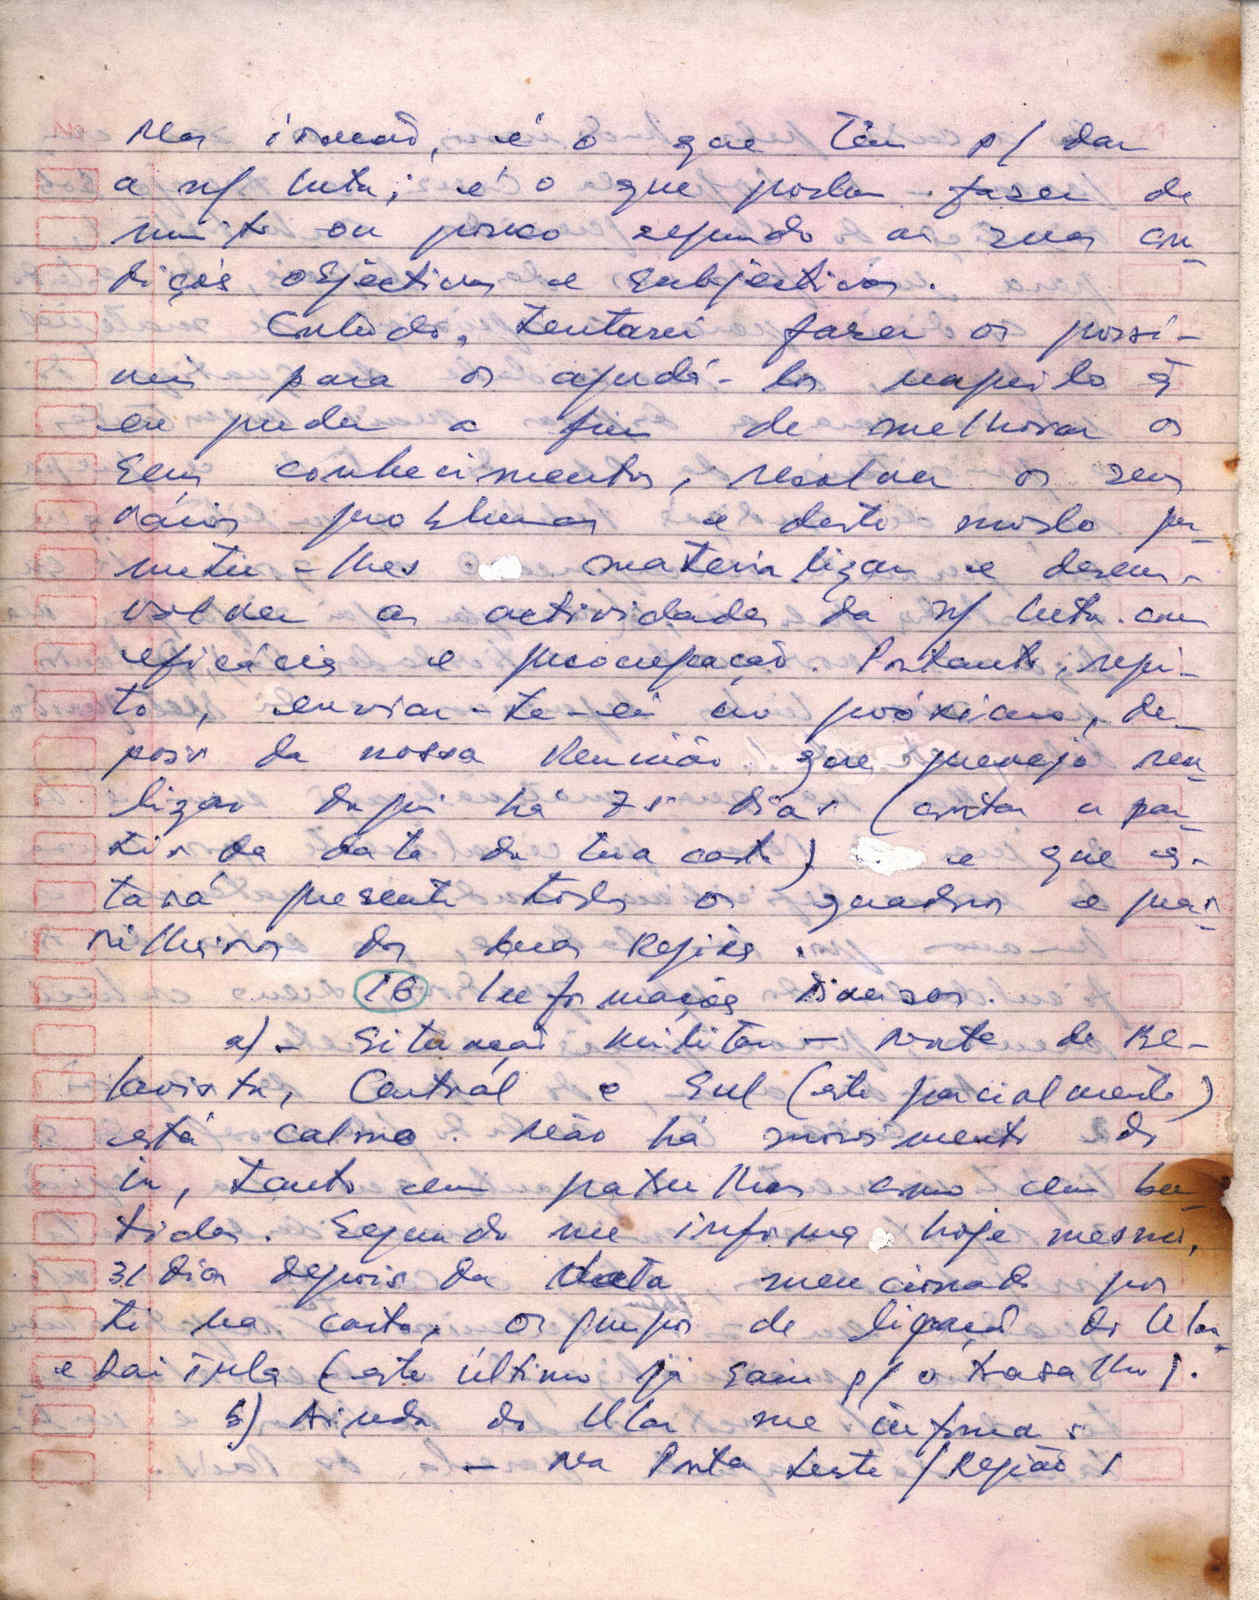 Mas irmão, é o que têm p/ dar
a n/ luta; é o que podem fazer de
muito ou pouco segundo as suas con-
dições objectivas e subjectivas.
Contudo, tentarei fazer os possí-
veis para os ajudá-los naquilo q̃
eu puder a fim de melhorar os
seus conhecimentos, resolver os seus
vários problemas e deste modo per-
mitir-lhes materializar e desen-
volver as actividades da n/ luta com
eficácia e preocupação. Portanto, repi-
to, enviar-te-ei no próximo, de-
pois da nossa Reunião que prevejo rea-
lizar daqui há 75 dias (contar a par-
tir da data da tua carta) e que es-
tará presente todos os quadros e guer-
rilheiros das duas Regiões.
16 Informações diversas.
a) - Situação Militar - Ponte de Be-
lavista, Central e Sul (este parcialmente)
está calmo. Não há movimento do
in, tanto em patrulhas como em ba-
tidas. Segundo me informa hoje mesmo,
31 dias depois da data mencionada por
ti na carta, os grupos de ligação do Ular
e Lai Tula (este último já saiu p/ o trabalho).
b) Ainda do Ular me informa:
- Na Ponta Leste / Região